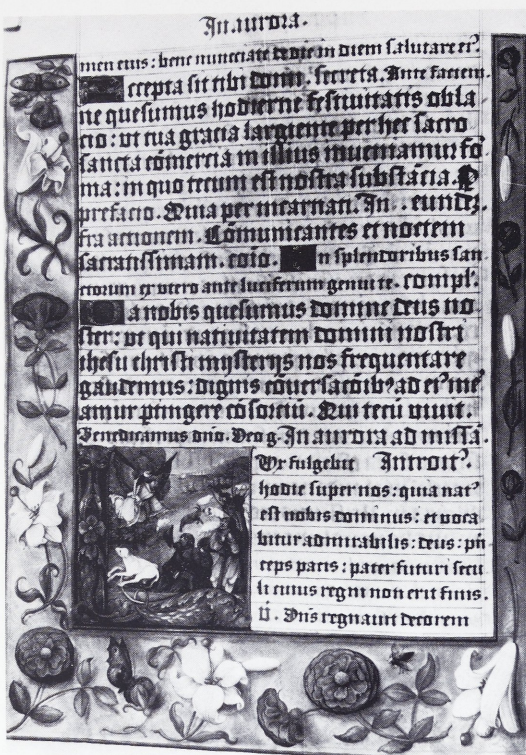 In aurora.
men eius: bene nunciate de die in diem salutare eiꝰ.
ccepta sit tibi domi. secreta. Ante faciem.
ne quesumus hodierne festiuitatis obla
cio: vt tua gracia largiente per hec sacro
sancta cōmercia in illius inueniamur fō
ma: in quo tecum est nostra substācia. P
prefacio. Quia per incarnati. In . eundē.
fra actionem. Cōmunicantes et noctem
sacratissimam. coīo. n splendoribus san
ctorum ex vtero ante luciferum genui te. compl.
a nobis quesumus domine deus no
ster: vt qui natiuitatem domini nostri
ihesu christi mysterijs nos frequentare
gaudemus: dignis cōuersacōibꝰ ad eiꝰ me
amur ptingere cōsorciū. Qui tecū viuit.
Benedicamus dño. Deo g. In aurora ad missā.
Vx fulgebit Introitꝰ.
hodie super nos: quia natꝰ
est nobis dominus: et voca
bitur admirabilis: deus: pñ
ceps pacis: pater futuri secu
li cuius regni non erit finis.
V. Dñs regnauit decorem